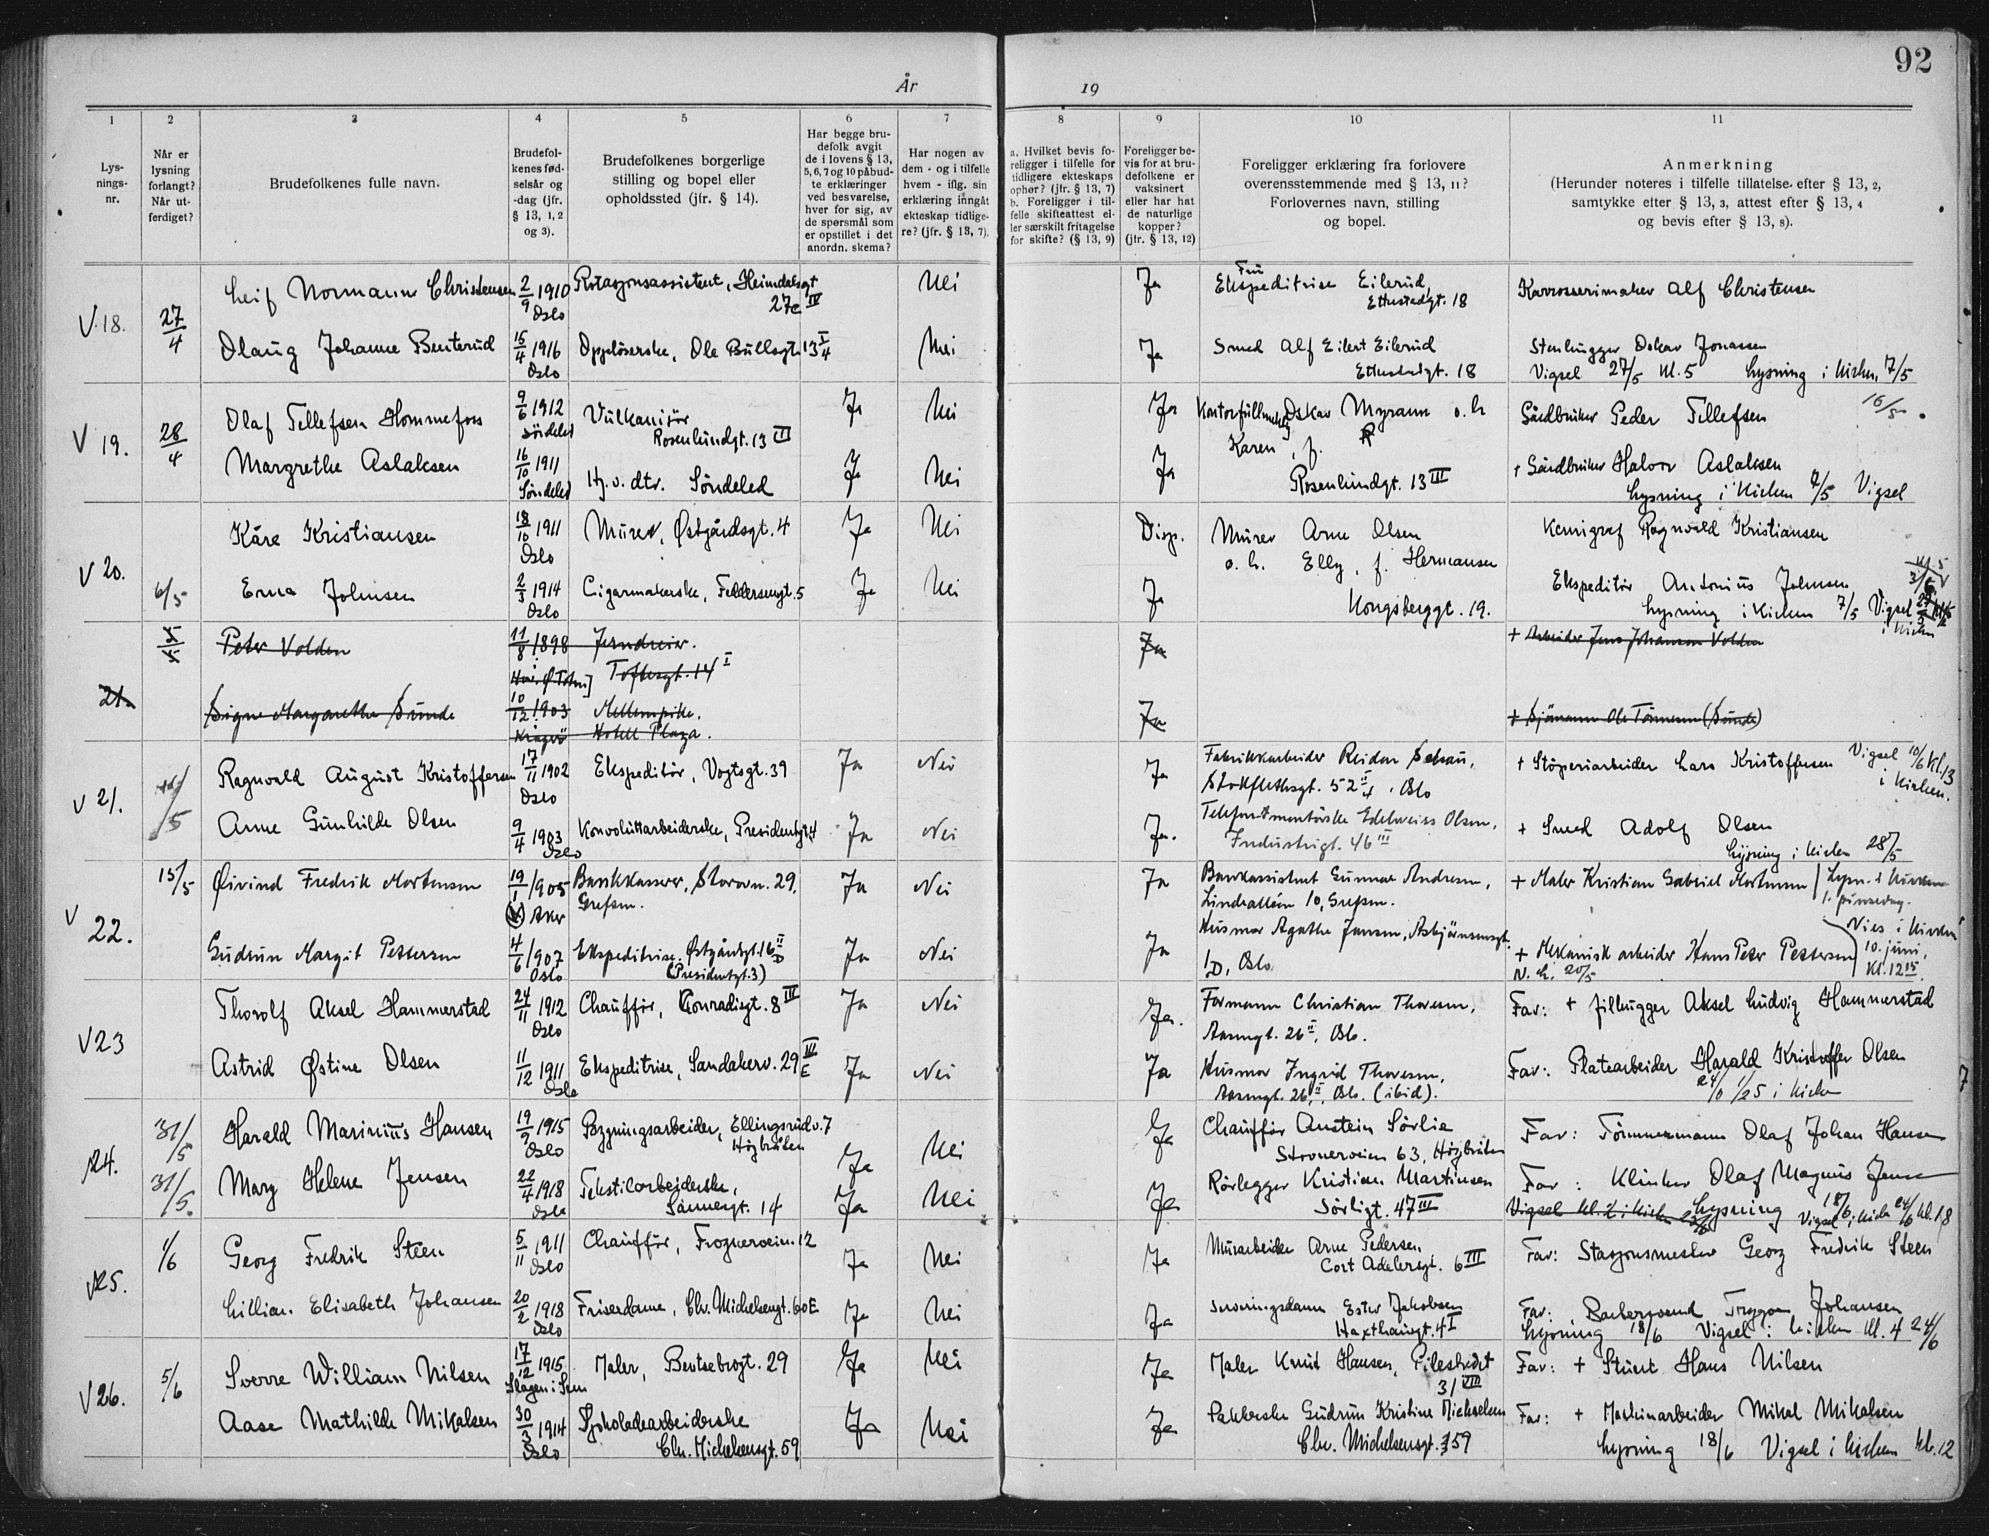 92
År 19
1 2 3 4 5 6 7 8 9 10 11
Lys-
nings-
nr.
Når er
lysning
forlangt?
Når ut-
ferdiget?
Brudefolkenes fulle navn.
Brudefol-
kenes fød-
selsår og
-dag (jfr.
§ 13, 1, 2
og 3).
Brudefolkenes borgerlige
stilling og bopel eller
opholdssted (jfr. § 14).
Har begge bru-
defolk avgit
de i lovens § 13,
5, 6, 7 og 10 påbud-
te erklæringer
ved besvarelse,
hver for sig, av
de spørsmål som
er opstillet i det
anordn. skema?
Har nogen av
dem - og i tilfelle
hvem - iflg. sin
erklæring inngåt
ekteskap tidlige-
re? (jfr. § 13, 7).
a. Hvilket bevis fo-
religger i tilfelle for
tidligere ekteskaps
ophør? (jfr. § 13, 7)
b. Foreligger i til-
felle skifteattest el-
ler særskilt fritagelse
for skifte? (§ 13, 9)
Foreligger be-
vis for at bru-
defolkene er
vaksinert
eller har hat
de naturlige
kopper?
(jfr. § 13, 12)
Foreligger erklæring fra forlovere
overensstemmende med § 13, 11?
Forlovernes navn, stilling
og bopel.
Anmerkning
(Herunder noteres i tilfelle tillatelse efter § 13, 2,
samtykke efter § 13, 3, attest efter § 13, 4
og bevis efter § 13, 8).
V.18. 27/4
Leif Normann Christensen 2/9 1910 Oslo Rotasjonsassistent, Heimdalsgt 27c IV Nei Ja Fru Ekspeditrise Eilerud, Ettustadgt. 18 Karrosserimaker Alf Christensen
Olaug Johanne Benterud 15/4 1916 Oslo Oppløserske, Ole Bullsgt. 13 I/4 Nei Ja Smed Alf Eilert Eilerud Ettustadgt. 18 Stenhugger Oskar Jonassen
Vigsel 27/5 kl. 5 Lysning i kirken 7/5
V 19. 28/4
Olaf Tellefsen Hommefoss 9/6 1912 Søndeled Vulkanisør Rosenlundgt. 13 III Ja Nei Ja Oskar Myrann o. h. Gårdbruker Peder Tellefsen 16/5
Margrethe Aslaksen 16/10 1911 Søndeled Hj.v. dtr. Søndeled Ja Nei Ja Karen, f. Rosenlundgt. 13 III + Gårdbruker Halvor Aslaksen
Lysning i kirken 7/5 Vigsel
V 20.
Kåre Kristiansen 18/10 1911 Oslo Murer, Østgårdsgt. 4 Ja Nei Disp. Murer Arne Olsen Kemigraf Ragnvald Kristiansen
6/5 Erna Johnsen 2/3 1914 Oslo Cigarmakerske, Feddersensgt. 5 Ja Nei Ja o. h. Elly, f. Hermansen Kongsberggt. 19. Ekspeditør Antonius Johnsen
Lysning i kirken 7/5 Vigsel i kirken
21.
Peter Volden 11/8 1898 Jerndreier. Toftesgt. 14 I Ja + Arbeider Jens Johansen Volden
Signe Margarethe Sunde 10/12 1903 Kragerø Mellempike. Hotell Plaza. Ja + Sjømann Ole Tönnesen (Sunde)
V 21.
Ragnvald August Kristoffersen 17/11 1902 Oslo Ekspeditør, Vogtsgt. 39 Ja Nei Ja Fabrikkarbeider Reidar Schau, Stokflethsgt. 52 II/4, Oslo + Støperiarbeider Lars Kristoffersen Vigsel 10/6 kl. 13 i kirken.
Anne Gunhilde Olsen 9/4 1903 Oslo Konvoluttarbeiderske, Presidentgt. 4 Ja Nei Ja. Telefonmontørske Edelweiss Olsen, Industrigt. 46 III + Smed Adolf Olsen
Lysning i kirken 28/5
V 22. 15/5
Øivind Fredrik Mortensen 19/1 1905 (V) Aker Bankkasserer, Storovn. 29, Grefsen. Ja Nei Ja Bankassistent Gunnar Andresen, Lindealléen 10, Grefsen. + Maler Kristian Gabriel Mortensen Lysn. i kirken 1. pinsedag.
Gudrun Margit Pettersen 4/6 1907 Oslo Ekspeditrise. Østgårdsgt. 16 II/D (Presidentgt. 3) Ja Nei Ja Husmor Agathe Jansen, Asbjørnsensgt. 1D, Oslo + Mekanisk arbeider Hans Peter Pettersen Vies i kirken 10. juni, kl. 12 15.
N. h. 20/5
V 23
Thorolf Aksel Hammerstad 24/11 1912 Oslo Chauffør, Conradisgt. 8 III Ja Nei Ja. Formann Christian Thoresen, Aasengt. 26 II, Oslo. Far: + filhugger Aksel Ludvig Hammerstad
Astrid Østine Olsen 11/12 1911 Oslo Ekspeditrise, Sandakerv. 29 III E Ja Nei Ja Husmor Ingrid Thoresen, Aasengt. 26 II, Oslo. (ibid). Far: Platearbeider Harald Kristoffer Olsen
i kirken
24. 31/5
Harald Marinius Hansen 19/9 1915 Oslo Bygningsarbeider, Ellingsrudv. 7 Høybråten Ja Nei Ja Chauffør Anstein Sørlie Stovnerveien 63, Høybråten Far: Tömmermann Olaf Johan Hansen
31/5. Mary Helene Jensen 22/4 1918 Oslo Tekstilarbeiderske, Sannergt. 14 Ja Nei Ja Rørlegger Kristian Martinsen Sørligt. 47 III Far: Klinker Olaf Magnus Jensen
Lysning 18/6 Vigsel i kirken 24/6 kl. 18
V25. 1/6
Georg Fredrik Steen 5/11 1911 Oslo Chauffør, Frognerveien. 12 Ja Nei Ja Murarbeider Arne Pedersen Cort Adelersgt. 6 III Far: Stasjonsmester Georg Fredrik Steen
Lillian Elisabeth Johansen 20/2 1918 Oslo Friserdame, Chr. Michelsensgt. 60E Ja Nei Ja Serveringsdame Ester Jakobsen Haxthausgt. 4 I Far: Barbersvend Trygve Johansen
Lysning 18/6 Vigsel i kirken kl. 4 24/6
V26. 5/6
Sverre William Nilsen 17/12 1915 Slagen i Sem Maler, Bentsebrogt. 29 Ja Nei Ja Maler Knut Hansen, Pilestredet 31 VIII Far: + Stuert Hans Nilsen
Aase Mathilde Mikalsen 30/3 1914 Oslo Sjokoladearbeiderske Chr. Michelsensgt. 59 Ja Nei Ja Pakkerske Gudrun Kristine Michaelsen Chr. Michelsensgt. 59 Far: + Maskinarbeider Mikal Mikalsen
Lysning 18/6 Vigsel i kirken kl. 12